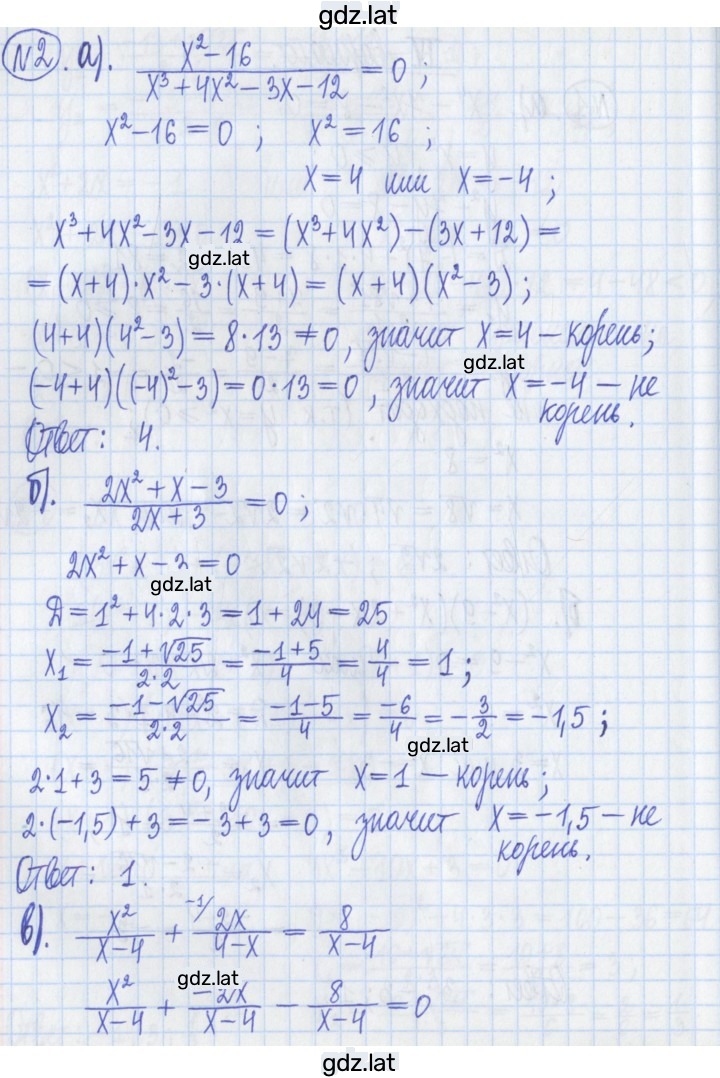 gdz.lat
№2. а). (x² − 16)/(x³ + 4x² − 3x − 12) = 0 ;
x² − 16 = 0 ; x² = 16 ;
x = 4 или x = −4 ;
x³ + 4x² − 3x − 12 = (x³ + 4x²) − (3x + 12) =
gdz.lat
= (x + 4)·x² − 3·(x + 4) = (x + 4)(x² − 3) ;
(4 + 4)(4² − 3) = 8·13 ≠ 0, значит x = 4 – корень;
gdz.lat
(−4 + 4)((−4)² − 3) = 0·13 = 0, значит x = −4 – не
корень.
Ответ: 4.
б). (2x² + x − 3)/(2x + 3) = 0 ;
2x² + x − 3 = 0
gdz.lat
Д = 1² + 4·2·3 = 1 + 24 = 25
x₁ = (−1 + √25)/(2·2) = (−1 + 5)/4 = 4/4 = 1 ;
x₂ = (−1 − √25)/(2·2) = (−1 − 5)/4 = −6/4 = −3/2 = −1,5 ;
gdz.lat
2·1 + 3 = 5 ≠ 0, значит x = 1 – корень;
2·(−1,5) + 3 = −3 + 3 = 0, значит x = −1,5 – не
корень.
Ответ: 1.
в). x²/(x − 4) + ⁻¹⁄ 2x/(4 − x) = 8/(x − 4)
gdz.lat
x²/(x − 4) + −2x/(x − 4) − 8/(x − 4) = 0
gdz.lat